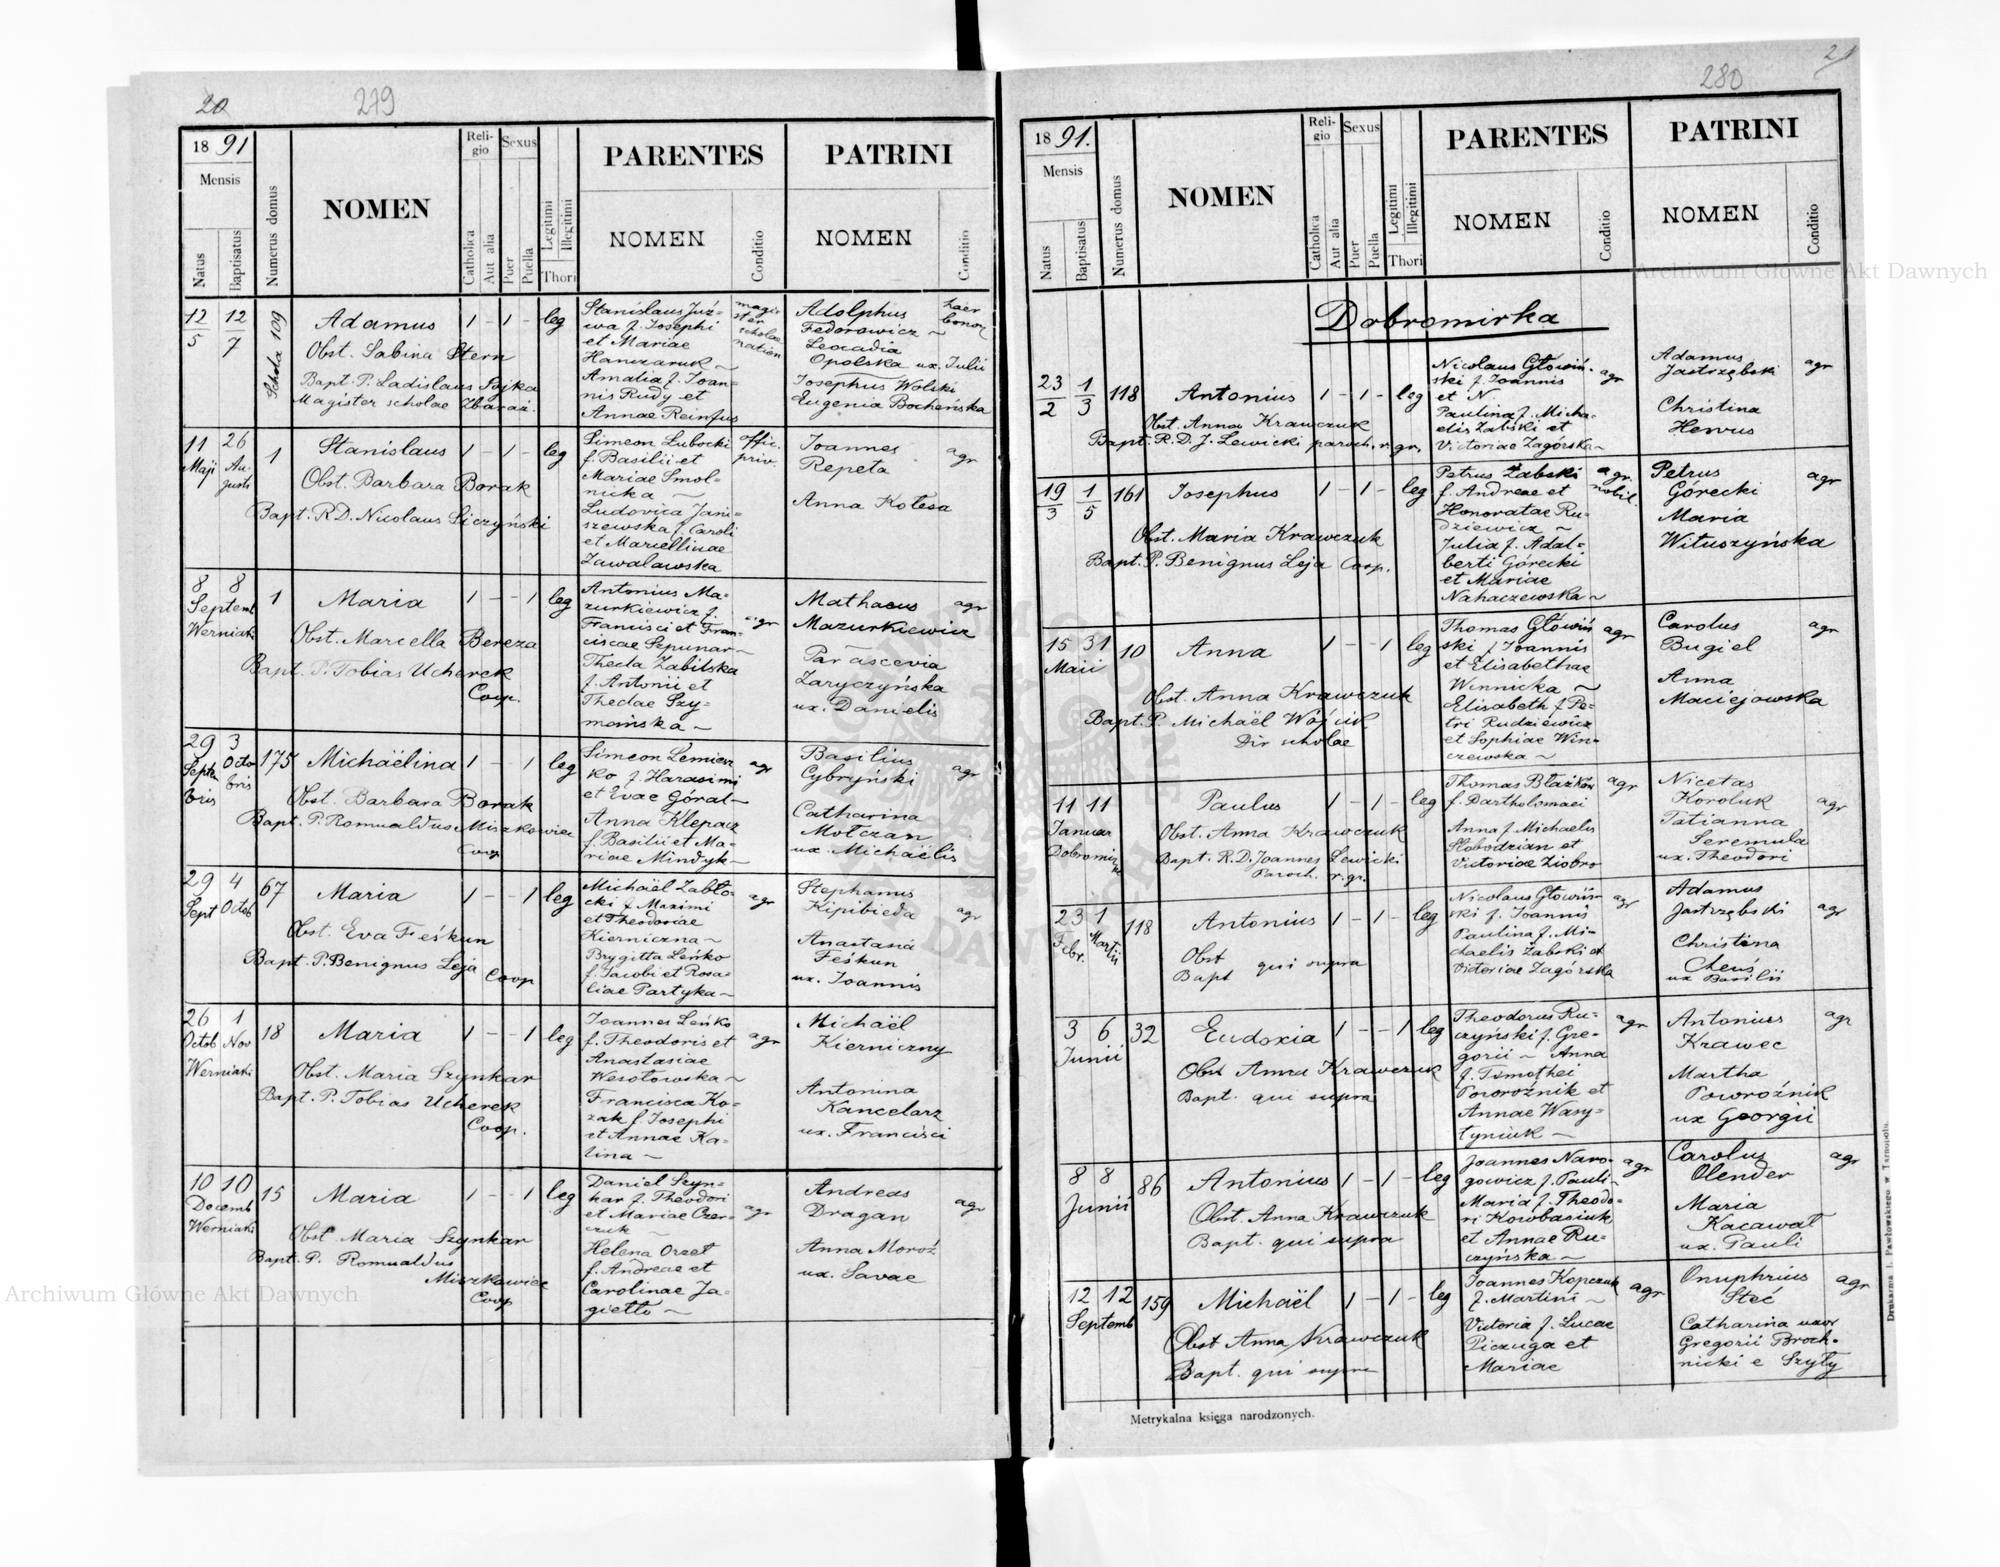 20
279
18 91
Mensis
Natus
Baptisatus
Numerus domus
NOMEN
Religio
Catholica
Aut alia
Sexus
Puer
Puella
Legitimi
Illegitimi
Thori
PARENTES
NOMEN
Conditio
PATRINI
NOMEN
Conditio
12/5 12/7 Schola 109 Adamus 1 - 1 - leg
Obst. Sabina Stern
Bapt. P. Ladislaus Fojka
Magister scholae Zbaraż.
Stanislaus Józ-
wa f. Josephi
et Mariae
Hanczaruk ~
Amalia f. Joan-
nis Rudy et
Annae Reinfus
magi-
ster
scholae
Adolphus
Fedorowicz ~
Leocadia
Opolska ux. Julii
Josephus Wolski
Eugenia Bocheńska
11 Maji 26 Au-
gusti 1 Stanislaus 1 - 1 - leg
Obst. Barbara Borak
Bapt. R.D. Nicolaus Liczyński
Simeon Lubocki
f. Basilii et
Mariae Smol-
nicka ~
Ludovica Jani-
szewska f. Caroli
et Marcellinae
Zawalawska
offic.
priv.
Joannes
Repeta
Anna Kotesa
agr
8 8 Septemb
Werniaki 1 Maria 1 - - 1 leg
Obst. Marcella Bereza
Bapt. P. Tobias Ucherek
Coop.
Antonius Ma-
zurkiewicz f.
Francisci et Fran-
ciscae Szpunar ~
Thecla Zabilska
f. Antonii et
Theclae Szy-
mańska ~
agr
Mathaeus
Mazurkiewicz
Parascevia
Zaryczyńska
ux. Danielis
agr
29 Septe
bris 3 Octo
bris 175 Michaëlina 1 - - 1 leg
Obst. Barbara Borak
Bapt. P. Romualdus Miszkowiec
Coop
Simeon Lemiesz
ko f. Harasimi
et Evae Góral ~
Anna Klepacz
f. Basilii et Ma-
riae Mindyk ~
agr
Basilius
Cybryński
Catharina
Motczan
ux. Michaëlis
agr
29 Sept 4 Octob 67 Maria 1 - - 1 leg
Obst. Eva Feśkun
Bapt. P. Benignus Leja Coop
Michaël Zabło-
cki f. Maximi
et Theodosiae
Kierniczna ~
Brygitta Leńko
f. Jacobi et Rosa-
liae Partyka ~
agr
Stephanus
Kipibieda
Anastasia
Feśkun
ux. Joannis
agr
26 Octob 1 Nov
Werniaki 18 Maria 1 - - 1 leg
Obst. Maria Szynkar
Bapt. P. Tobias Ucherek
Coop.
Joannes Leńko
f. Theodoris et
Anastasiae
Wesołowska ~
Francisca Ko-
zak f. Josephi
et Annae Ka-
lina ~
agr
Michaël
Kierniczny
Antonina
Kancelarz
ux. Francisci
10 10 Decemb
Werniaki 15 Maria 1 - - 1 leg
Obst. Maria Szynkar
Bapt. P. Romualdus
Miszkowiec
Coop
Daniel Szyn-
kar f. Theodori
et Mariae Czer-
czuk ~
Helena Orzet
f. Andreae et
Carolinae Ja-
giełło ~
agr
Andreas
Dragan
Anna Moroź
ux. Savae
agr
21
280
18 91.
Mensis
Natus
Baptisatus
Numerus domus
NOMEN
Religio
Catholica
Aut alia
Sexus
Puer
Puella
Legitimi
Illegitimi
Thori
PARENTES
NOMEN
Conditio
PATRINI
NOMEN
Conditio
Dobromirka
23/2 1/3 118 Antonius 1 - 1 - leg
Obst. Anna Krawczuk
Bapt. R. D. J. Lewicki paroch. r. gr.
Nicolaus Głowiń-
ski f. Joannis
et N.
Paulina f. Micha-
elis Zabski et
Victoriae Zagórska ~
agr
Adamus
Jastrzębski
Christina
Hewus
agr
19/3 1/5 161 Josephus 1 - 1 - leg
Obst. Maria Krawczuk
Bapt. P. Benignus Leja Coop.
Petrus Zabski
f. Andreae et
Honoratae Ru-
dziewicz ~
Julia f. Adal-
berti Górecki
et Mariae
Nahaczewska ~
agr.
nobil.
Petrus
Górecki
Maria
Wituszyńska
agr
15 31 Maii 10 Anna 1 - - 1 leg
Obst. Anna Krawczuk
Bapt. P. Michaël Wójcik
Dir scholae
Thomas Głowiń
ski f. Joannis
et Elisabethae
Winnicka ~
Elisabeth f. Pe-
tri Rudziewicz
et Sophiae Win-
czewska ~
agr
Carolus
Bugiel
Anna
Maciejowska
agr
11 11 Januar
Dobromirka Paulus 1 - 1 - leg
Obst. Anna Krawczuk
Bapt. R. D. Joannes Lewicki
Paroch. r. gr.
Thomas Błażków
f. Bartholomaei
Anna f. Michaelis
Slobodzian et
Victoriae Ziobro
agr
Nicetas
Koroluk
Tatianna
Seremula
ux. Theodori
agr
23 Febr. 1 Martii 118 Antonius 1 - 1 - leg
Obst
Bapt qui supra
Nicolaus Głowiń-
ski f. Joannis
Paulina f. Mi-
chaelis Zabski et
Victoriae Zagórska
agr
Adamus
Jastrzębski
Christina
Cheuś
ux Basilii
agr
3 6 Junii 32 Eudoxia 1 - - 1 leg
Obst Anna Krawczuk
Bapt. qui supra
Theodorus Ru-
czyński f. Gre-
gorii ~ Anna
f. Timothei
Poworoźnik et
Annae Wasy-
tyniuk ~
agr
Antonius
Krawec
Martha
Poworoźnik
ux Georgii
agr
8 8 Junii 86 Antonius 1 - 1 - leg
Obst. Anna Krawczuk
Bapt. qui supra
Joannes Naro-
gowicz f. Pauli ~
Maria f. Theodo-
ri Kowbasiuk
et Annae Ru-
czyńska ~
agr
Carolus
Olender
Maria
Kacawał
ux. Pauli
agr
12 12 Septemb 159 Michaël 1 - 1 - leg
Obst Anna Krawczuk
Bapt. qui supra
Joannes Kopczuk
f. Martini ~
Victoria f. Lucae
Piczuga et
Mariae
agr
Onuphrius
Steć
Catharina uxor
Gregorii Broch-
nicki e Szyły
agr
Metrykalna księga narodzonych.
Drukarnia L. Pawłowskiego w Tarnopolu.
Archiwum Główne Akt Dawnych
Archiwum Główne Akt Dawnych